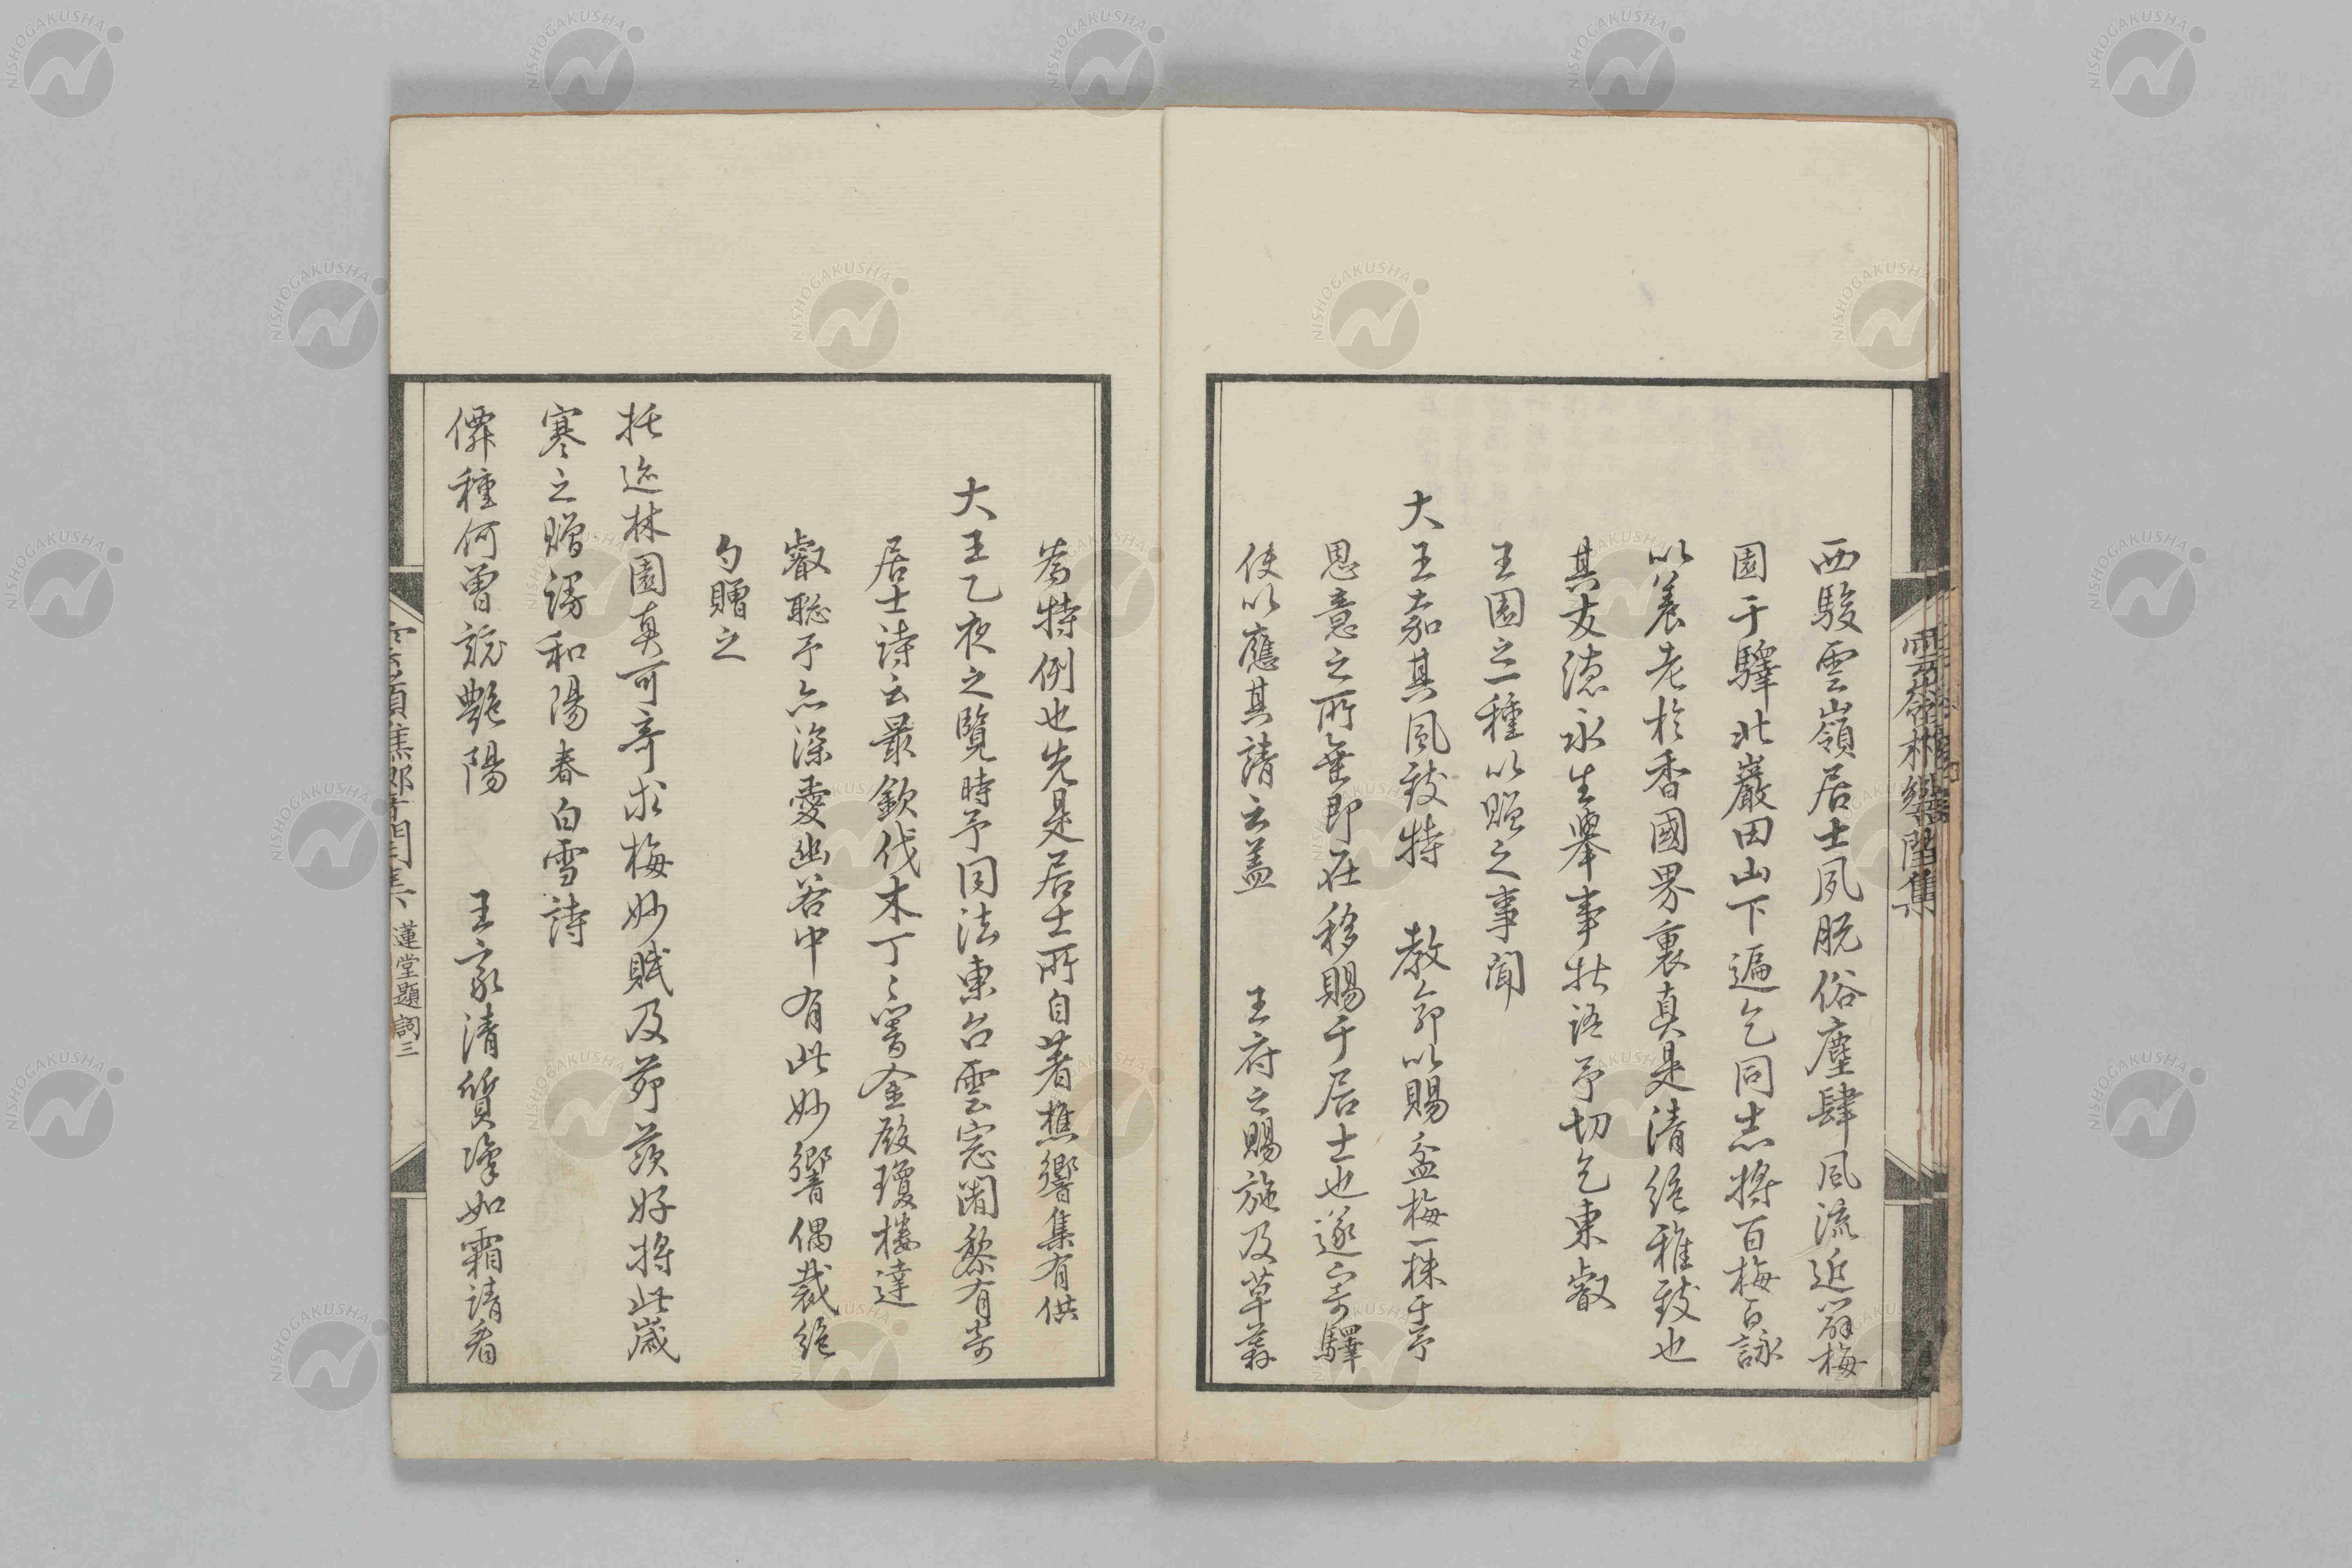 西駿雲嶺居士夙脱俗塵肆風流近闢梅
園于驛北巖田山下遍乞同志將百梅百詠
以養老於香國界裏真是清絶雅致也
其友德永生舉事狀語予切乞東叡
王園之一種以贈之事聞
大王嘉其風致特 教命以賜盆梅一株于予
恩意之所垂即在移賜于居士也遂寄驛
使以應其請云蓋 王府之賜施及草莽
為特例也先是居士所自著樵響集有供
大王乙夜之覧時予同法東台雲窓闍黎有寄
居士詩云最歓伐木丁々響金殿瓊樓達
叡聡予亦深愛幽谷中有此妙響偶裁絶
句贈之
托迹林園真可奇求梅妙賦及茆茨好將此歳
寒之贈謾和陽春白雪詩
僊種何曾競艶陽 王家清質潔如霜請看
蓮堂題詞三
NISHOGAKUSHA